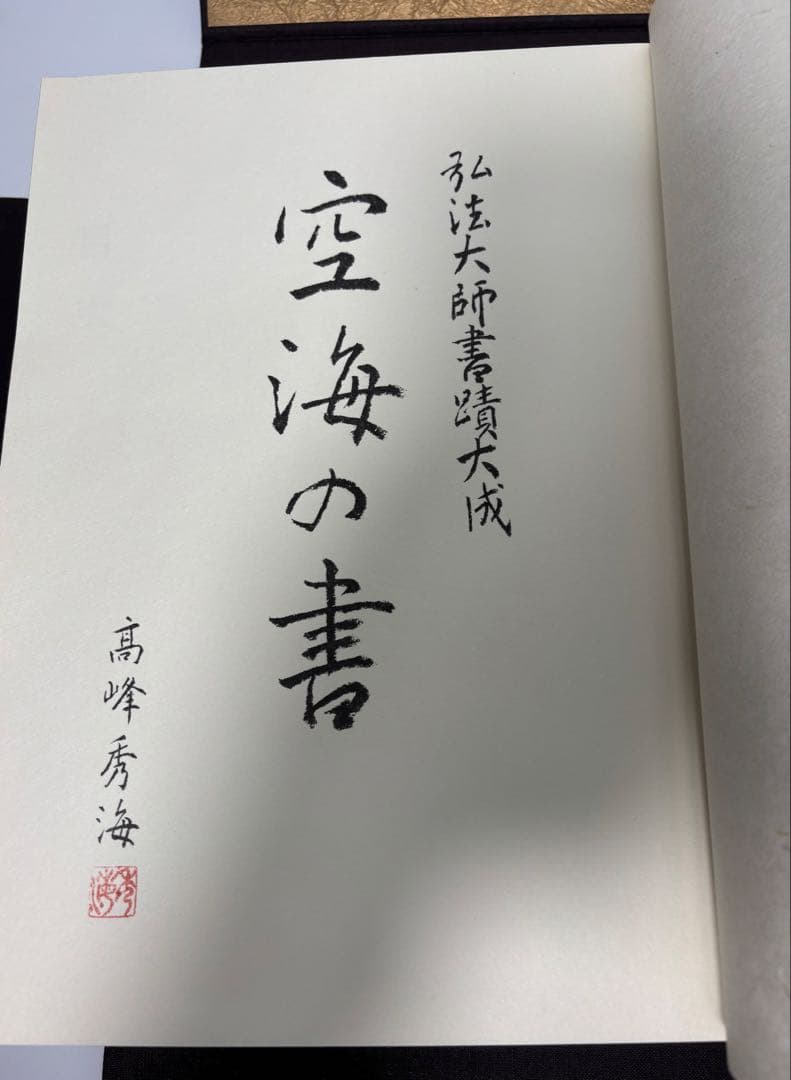 弘法大師書蹟大成
空海の書
高峰秀海
秀海